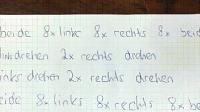 beide 8x links 8x rechts 8x be
links drehen 2x rechts drehen
links drehen 2x rechts drehen
beide 8x links 8x rechts 8x be